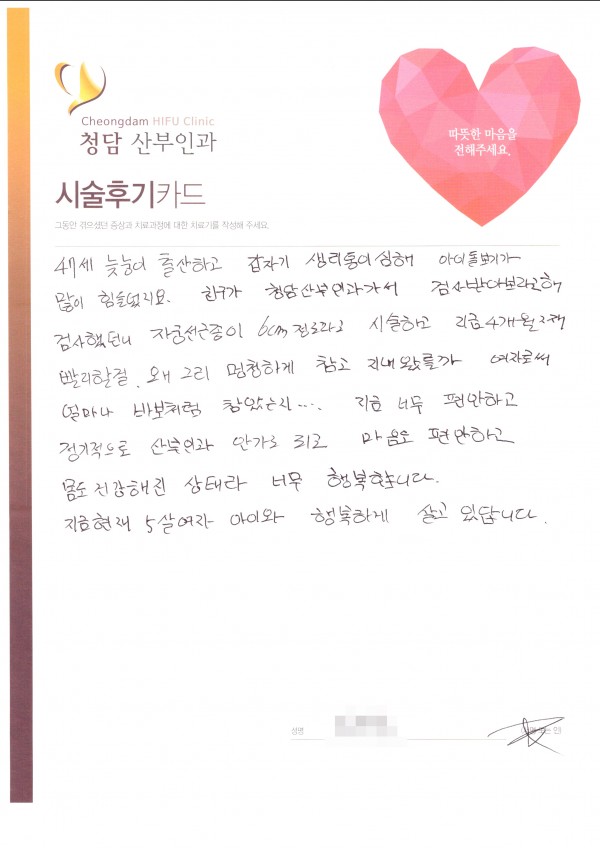 Cheongdam HIFU Clinic
청담 산부인과
따뜻한 마음을
전해주세요.
시술후기카드
그동안 겪으셨던 증상과 치료과정에 대한 치료기를 작성해 주세요.
47세 늦둥이 출산하고 갑자기 생리통이 심해 아이돌보기가
많이 힘들었지요. 친구가 청담산부인과가서 검사받아보라고해
검사했더니 자궁선근종이 6cm 진료라고 시술하고 지금 4개월째
빨리할걸. 왜 그리 멍청하게 참고 지내왔을까 여자로써
얼마나 바보처럼 참았는지.... 지금 너무 편안하고
정기적으로 산부인과 안가도 되고 마음도 편안하고
몸도 건강해진 상태라 너무 행복합니다.
지금현재 5살여자 아이와 행복하게 살고 있답니다.
성명